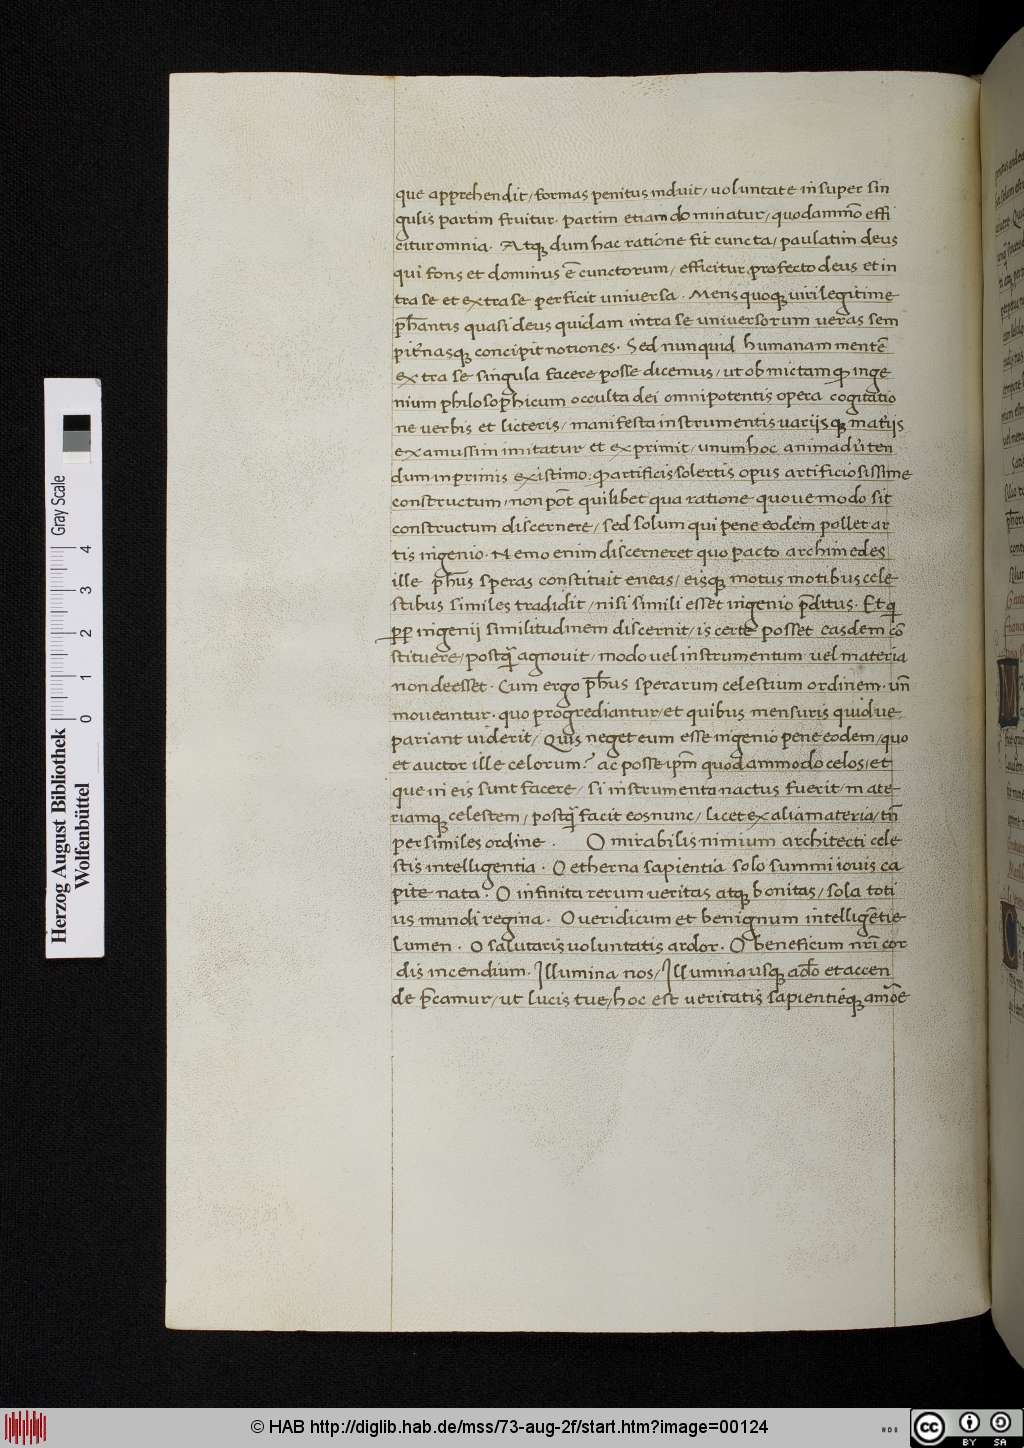 que apprehendit/ formas penitus induit/ voluntate insuper sin
gulis partim fruitur. partim etiam dominatur/ quodammõ effi
citur omnia. Atq; dum hac ratione fit cuncta/ paulatim deus
qui fons et dominus ẽ cunctorum/ efficitur, profecto deus et in
tra se et extra se perficit universa. Mens quoq; viri legitime
ph̃antis quasi deus quidam intra se universorum veras sem
pit̃nasq; concipit notiones. Sed nunquid humanam mentẽ
extra se singula facere posse dicemus/ ut ob mictam ꝙ inge
nium philosophicum occulta dei omnipotentis opera cogitatio
ne verbis et licteris/ manifesta instrumentis varijsq; mat̃ijs
examussim imitatur et exprimit/ unum hoc animadũten
dum inprimis existimo: ꝙ artificis solertis opus artificiosissime
constructum/ non põt quilibet qua ratione quove modo sit
constructum discernere/ sed solum qui pene eodem pollet ar
tis ingenio. Nemo enim discerneret quo pacto archimedes
ille ph̃us speras constituit eneas/ eisq; motus motibus cele
stibus similes tradidit/ nisi simili esset ingenio p̃ditus. Et q̃
ꝓp̃ ingenii similitudinem discernit/ is certe posset easdem cõ
stituere/ postq̃ agnovit/ modo vel instrumentum vel materia
non deesset. Cum ergo ph̃us sperarum celestium ordinem. uñ
moveantur. quo progrediantur/ et quibus mensuris quidve
pariant viderit/ Quis neget eum esse ingenio pene eodem/ quo
et auctor ille celorum? ac posse ip̃m quodammodo celos/ et
que in eis sunt facere/ si instrumenta nactus fuerit/ mate
riamq; celestem/ postq̃ facit eos nunc/ licet ex alia materia/ tñ
persimiles ordine. O mirabilis nimium architecti cele
stis intelligentia. O etherna sapientia solo summi iovis ca
pite nata. O infinita rerum veritas atq; bonitas/ sola toti
us mundi regina. O veridicum et benignum intelligẽtie
lumen. O salutaris voluntatis ardor. O beneficum nr̃i cor
dis incendium. Illumina nos/ Illumina usq; adõ et accen
de p̃camur/ ut lucis tue/ hoc est veritatis sapientieq; amõe
Herzog August Bibliothek
Wolfenbüttel
Gray Scale
0 1 2 3 4
© HAB http://diglib.hab.de/mss/73-aug-2f/start.htm?image=00124
cc BY SA